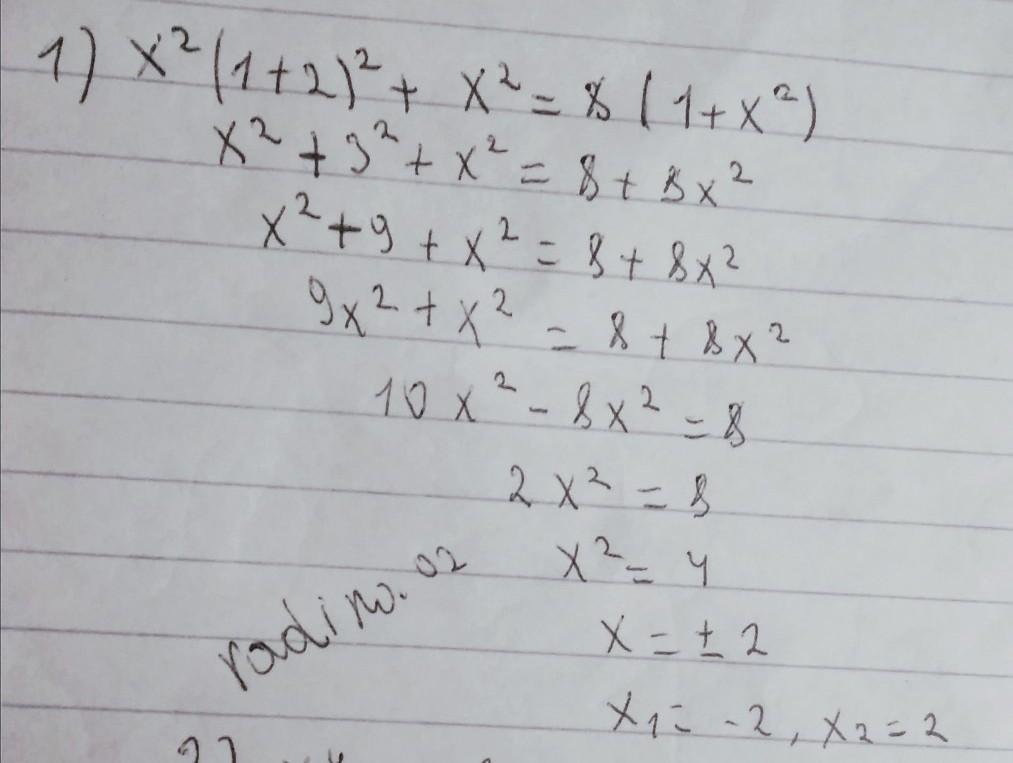 1) x²(1+2)² + x² = 8(1+x²)
x² + 3² + x² = 8 + 8x²
x² + 9 + x² = 8 + 8x²
9x² + x² = 8 + 8x²
10x² - 8x² = 8
2x² = 8
x² = 4
x = ± 2
x₁ = -2, x₂ = 2
radimo.02